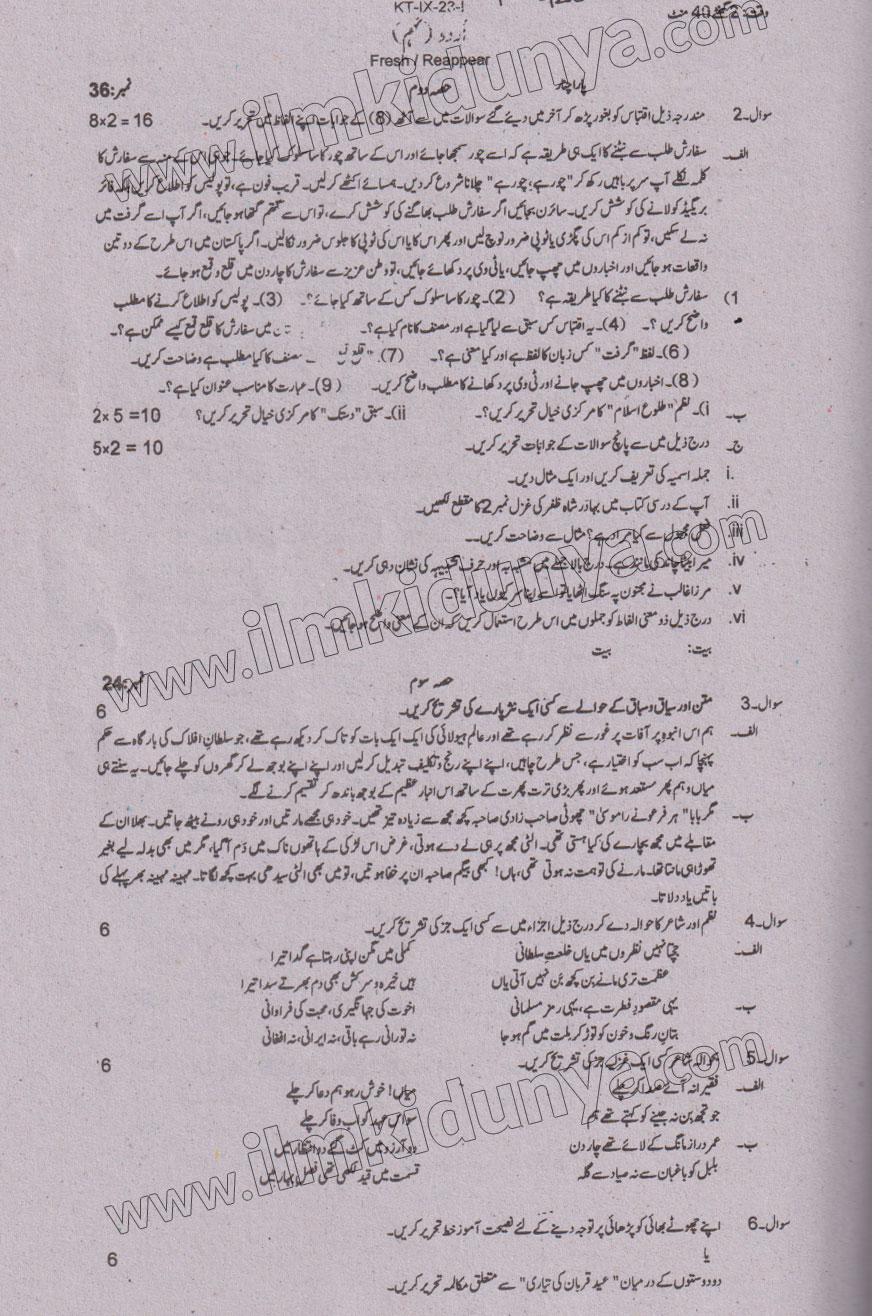 KT-IX-23-I
وقت: 2 گھنٹے 40 منٹ
اُردو (نہم)
Fresh / Reappear
نمبر:36 حصہ دوم پاراچنار
سوال۔2 مندرجہ ذیل اقتباس کو بغور پڑھ کر آخر میں دیئے گئے سوالات میں سے آٹھ (8) کے جوابات اپنے الفاظ میں تحریر کریں۔ 8×2 = 16
الف۔ سفارش طلب سے نپٹنے کا ایک ہی طریقہ ہے کہ اسے چور سمجھا جائے اور اس کے ساتھ چور کا سا سلوک کیا جائے۔ جونہی اس کے منہ سے سفارش کا
کلمہ نکلے آپ سر پر باہیں رکھ کر "چور ہے؛ چور ہے" چلانا شروع کر دیں۔ ہمسائے اکٹھے کر لیں۔ قریب فون ہے، تو پولیس کو اطلاع کریں بلکہ فائر
بریگیڈ کو لانے کی کوشش کریں۔ سائرن بجائیں اگر سفارش طلب بھاگنے کی کوشش کرے، تو اس سے گتھم گتھا ہو جائیں، اگر آپ اسے گرفت میں
نہ لے سکیں، تو کم از کم اس کی پگڑی یا ٹوپی ضرور نوچ لیں اور پھر اس کا یا اس کی ٹوپی کا جلوس ضرور نکالیں۔ اگر پاکستان میں اس طرح کے دو تین
واقعات ہو جائیں اور اخباروں میں چھپ جائیں، یا ٹی وی پر دکھائے جائیں، تو وطن عزیز سے سفارش کا چار دن میں قلع وقمع ہو جائے۔
(1 سفارش طلب سے نپٹنے کا کیا طریقہ ہے؟ (2)۔ چور کا سا سلوک کس کے ساتھ کیا جائے؟۔ (3)۔ پولیس کو اطلاع کرنے کا مطلب
واضح کریں ؟۔ (4)۔ یہ اقتباس کس سبق سے لیا گیا ہے اور مصنف کا نام کیا ہے؟۔ میں سفارش کا قلع قمع کیسے ممکن ہے؟۔
(6)۔ لفظ "گرفت" کس زبان کا لفظ ہے اور کیا معنی ہے؟۔ (7)۔ "قلع قمع مصنف کا کیا مطلب ہے وضاحت کریں۔
(8)۔ اخباروں میں چھپ جانے اور ٹی وی پر دکھانے کا مطلب واضح کریں۔ (9)۔ عبارت کا مناسب عنوان کیا ہے؟۔
ب۔ i)۔ نظم "طلوع اسلام" کا مرکزی خیال تحریر کریں؟۔ ii)۔ سبق "دستک" کا مرکزی خیال تحریر کریں؟ 2× 5 =10
ج۔ درج ذیل میں سے پانچ سوالات کے جوابات تحریر کریں۔ 5×2 = 10
i. جملہ اسمیہ کی تعریف کریں اور ایک مثال دیں۔
ii. آپ کے درسی کتاب میں بہادر شاہ ظفر کی غزل نمبر 2 کا مقطع لکھیں۔
iii. فعل مجہول سے کیا مراد ہے؟ مثال سے وضاحت کریں۔۔
iv. میرا بیٹا چاند کی مانند ہے۔ درج بالا جملے میں مشبہ بہ اور حرف تشبیہہ کی نشان دہی کریں۔
v. مرزا غالب نے مجنون پہ سنگ اٹھایا تو اسے اپنا سر کیوں یاد آیا؟۔
vi. درج ذیل ذو معنی الفاظ کو جملوں میں اس طرح استعمال کریں کہ ان کے معنی واضح ہو جائیں۔
بیت: بیت
نمبر:24 حصہ سوم
سوال۔3 متن اور سیاق و سباق کے حوالے سے کسی ایک نثر پارے کی تشریح کریں۔ 6
الف۔ ہم اس انبوہ پر آفات پر غور سے نظر کر رہے تھے اور عالم ہیولائی کی ایک ایک بات کو تاک کر دیکھ رہے تھے، جو سلطانِ افلاک کی بارگاہ سے حکم
پہنچا کہ اب سب کو اختیار ہے، جس طرح چاہیں، اپنے اپنے رنج و تکلیف تبدیل کر لیں اور اپنے اپنے بوجھ لے کر گھروں کو چلے جائیں۔ یہ سنتے ہی
میاں وہم پھر مستعد ہوئے اور پھر بڑی ترت پھرت کے ساتھ اس انبار عظیم کے بوجھ باندھ کر تقسیم کرنے لگے۔
ب۔ مگر بابا "ہر فرعونے راموسیٰ" چھوٹی صاحب زادی صاحبہ کچھ مجھ سے زیادہ تیز تھیں۔ خود ہی مجھے مارتیں اور خود ہی رونے بیٹھ جاتیں۔ بھلا ان کے
مقابلے میں مجھ بچارے کی کیا ہستی تھی۔ الٹی مجھ پر ہی لے دے ہوتی، غرض اس لڑکی کے ہاتھوں ناک میں دَم آ گیا، مگر میں بھی بدلہ لیے بغیر
تھوڑا ہی مانتا تھا۔ مارنے کی تو ہمت نہ ہوتی تھی، ہاں! کبھی بیگم صاحبہ ان پر خفا ہوتیں، تو میں بھی الٹی سیدھی بہت کچھ لگاتا۔ مہینہ مہینہ بھر پہلے کی
باتیں یاد دلاتا۔
سوال۔4 نظم اور شاعر کا حوالہ دے کر درج ذیل اجزاء میں سے کسی ایک جز کی تشریح کریں۔ 6
الف۔ جچتا نہیں نظروں میں یاں خلعتِ سلطانی کملی میں مگن اپنی رہتا ہے گدا تیرا
عظمت تری مانے بن کچھ بَن نہیں آتی یاں ہیں خیرہ و سرکش بھی دم بھرتے سدا تیرا
ب۔ یہی مقصودِ فطرت ہے، یہی رمزِ مسلمانی اخوت کی جہانگیری، محبت کی فراوانی
بتانِ رنگ و خون کو توڑ کر ملت میں گم ہو جا نہ تورانی رہے باقی، نہ ایرانی، نہ افغانی
سوال۔5 بحوالہ شاعر کسی ایک غزلیہ جز کی تشریح کریں۔ 6
الف۔ فقیرانہ آئے صدا کر چلے میاں! خوش رہو ہم دعا کر چلے
جو تجھ بِن نہ جینے کو کہتے تھے ہم سو اس عہد کو اب وفا کر چلے
ب۔ عمر دراز مانگ کے لائے تھے چار دن دو آرزو میں کٹ گئے دو انتظار میں
بلبل کو باغباں سے نہ صیاد سے گلہ قسمت میں قید لکھی تھی فصلِ بہار میں
سوال۔6 اپنے چھوٹے بھائی کو پڑھائی پر توجہ دینے کے لئے نصیحت آموز خط تحریر کریں۔
یا
6
دو دوستوں کے درمیان "عید قربان کی تیاری" سے متعلق مکالمہ تحریر کریں۔
www.ilmkidunya.com
www.ilmkidunya.com
www.ilmkidunya.com